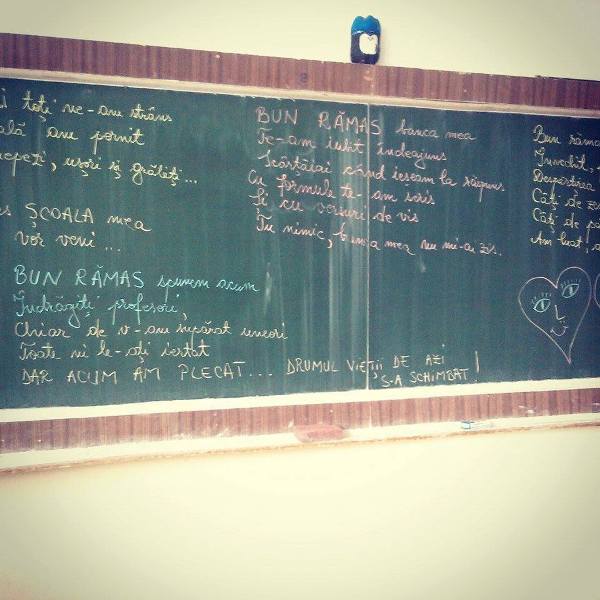 i toţi ne-am strâns
ală am pornit
repeţi, uşori şi grăbiţi...
ŞCOALA mea
vor veni ...
BUN RĂMAS spunem acum
Îndrăgiţi profesori,
Chiar de v-am supărat uneori
Toate ni le-aţi iertat
DAR ACUM AM PLECAT... DRUMUL VIEŢII DE AZI
S-A SCHIMBAT!
BUN RĂMAS banca mea
Te-am iubit îndeajuns
Scârţâiai când ieseam la răspuns
Cu formule te-am scris
Şi cu versuri de vis
Tu nimic, banca mea nu mi-ai zis.
Bun răma
Despărţirea
Câţi de
Câţi de
Am luat!